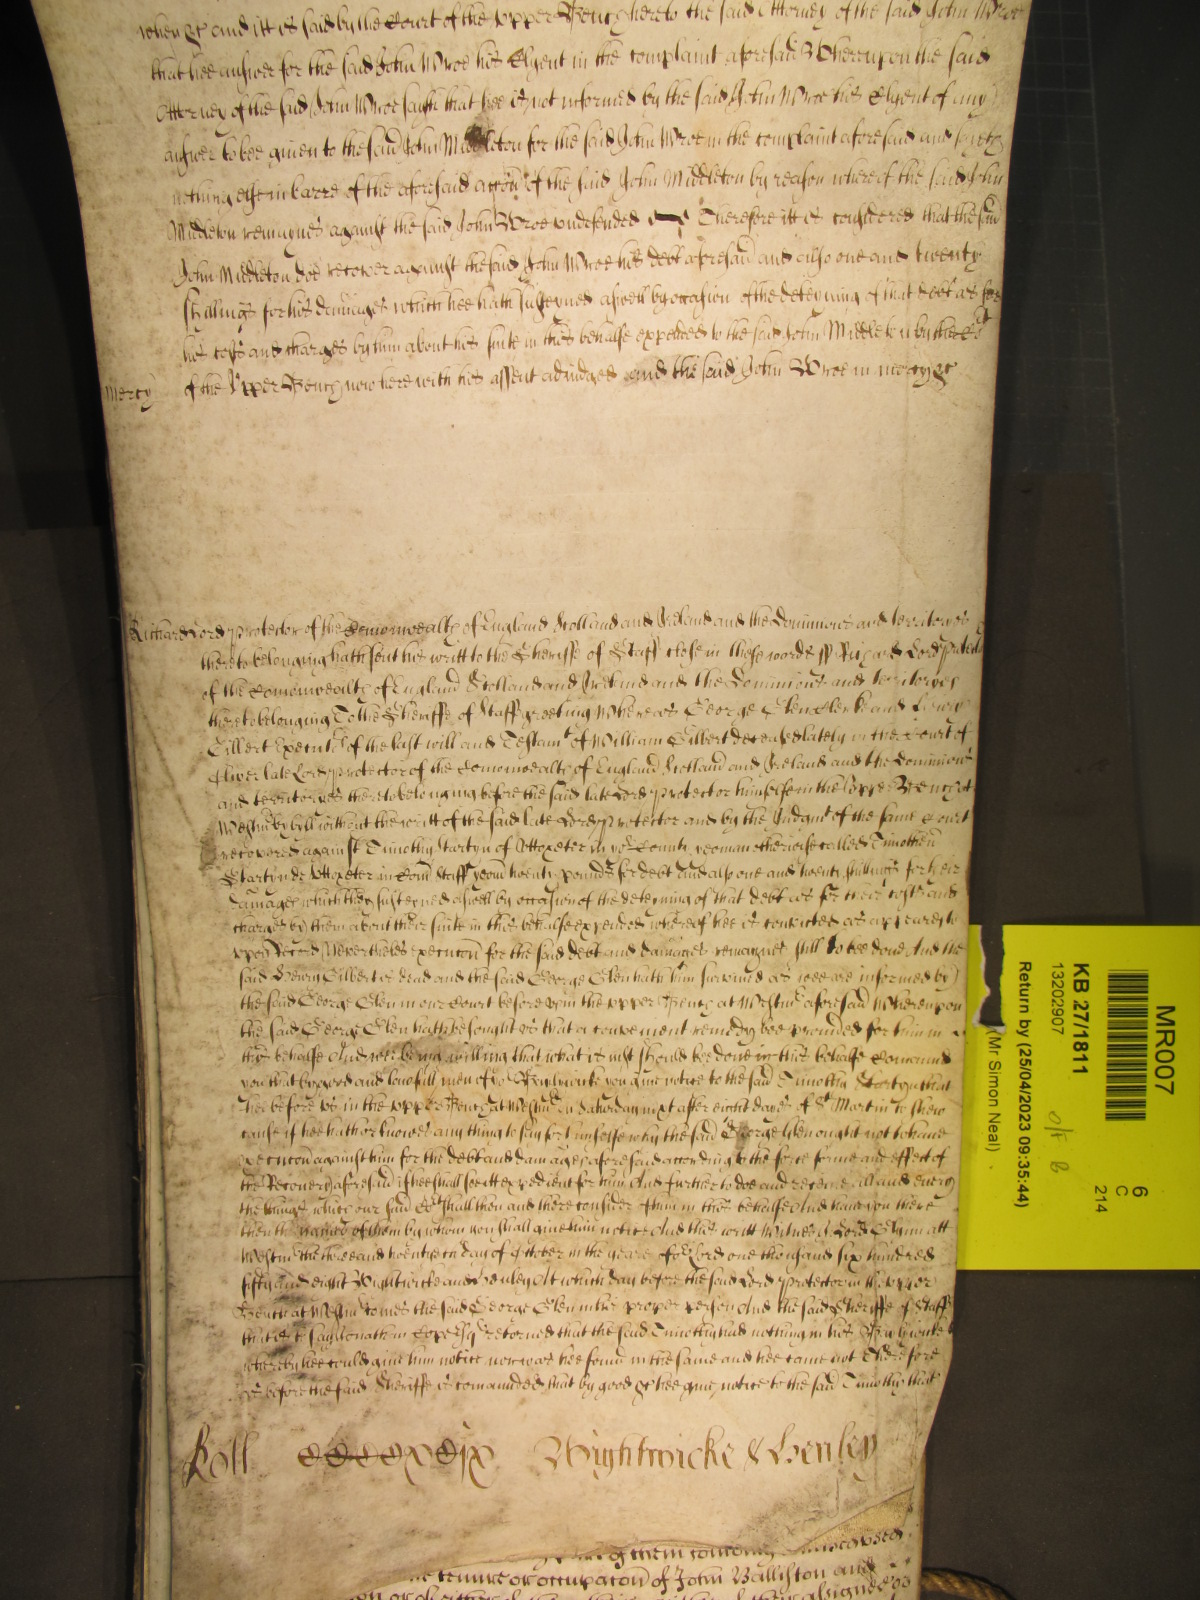 when &c and itt is said by the Court of the Upper Bench here to the said Attorney of the said John Wroe
that hee answer for the said John Wroe his Clyent in the complaint aforesaid Whereupon the said
Attorney of the said John Wroe saith that hee is not informed by the said John Wroe his Clyent of any
answer to bee given to the said John Middleton for the said John Wroe in the complaint aforesaid and sayeth
nothing else in barre of the aforesaid accon of the said John Middleton by reason whereof the said John
Middleton remaynes against the said John Wroe undefended Therefore itt is considered that the said
John Middleton doe recover against the said John Wroe his debt aforesaid and also one and twenty
shillings for his damages which hee hath susteyned aswell by occasion of the deteyning of that debt as for
his costs and charges by him about his suite in this behalfe expended to the said John Middleton by the Court
Mercy of the Upper Bench now here with his assent adiudged And the said John Wroe in mercy &c
Richard Lord Protector of the Comonwealth of England Scotland and Ireland and the Dominions and territories
thereto belonging hath sent his writt to the Sheriffe of Staff close in these words ss Richard Lord Protector
of the Comonwealth of England Scotland and Ireland and the Dominions and territories
thereto belonging To the Sheriffe of Staff greeting Whereas George Glen Clerke and Henry
Gilbert Executrs of the last will and Testamt of William Gilbert deceased lately in the Court of
Oliver late Lord Protector of the Comonwealth of England Scotland and Ireland and the Dominions
and territories thereto belonging before the said late Lord Protector himselfe in the Upper Bench at
Westmr by bill without the writt of the said late Lord Protector and by the Judgmt of the same Court
recovered against Timothy Startyn of Uttoxeter in yor County yeoman otherwise called Timotheu
Startyn de Uttoxeter in Com Staff yeom twenty pounds for debt and also one and twenty shillings for their
damages which they susteyned aswell by occasion of the deteyning of that debt as for their costs and
charges by them about their suite in this behalfe expended whereof hee is convicted as appeares to
us upon Record Neverthelesse execucon for the said debt and damages remaynes still to bee done And the
said Henry Gilbert is dead and the said George Glen hath him survived as wee are informed by
the said George Glen in our Court before us in the upper Bench at Westmr aforesaid Whereupon
the said George Glen hath besought us that a convenient remedy bee provided for him in
this behalfe And wee being willing that what is just should bee done in this behalfe Comand
you that by good and lawfull men of yor Baylywicke you give notice to the said Timothy Startyn that
hee before us in the upper Bench at Westmr on Saturday next after eight dayes of St Martin to shew
cause if hee hath or knowes any thing to say for himselfe why the said George Glen ought not to have
execucon against him for the debt and damages aforesaid according to the force forme and effect of
the Recovery aforesaid if hee shall see itt expedient for him And further to doe and receive all and every
the things which our said Court shall then and there consider of him in this behalfe And have you there
then the names of them by whom you shall give him notice And this writt Witnes J Lord Glynn att
Westmr the three and twentieth day of October in the yeare of our Lord one thousand six hundred
fifty and eight Wightwicke and Henley At which day before the said Lord Protector in the upper
Bench at Westmr comes the said George Glen in his proper person And the said Sheriffe of Staff
that is to say Jonathan Cope Esq returned that the said Timothy had nothing in his Baylywicke
whereby hee could give him notice nor was hee found in the same and hee came not Therefore
as before the said Sheriffe is comanded that by good &c hee give notice to the said Timothy that
Roll Wightwicke & Henley
of them
tenure or occupacon of John Balliston and
MR007
6
C
214
KB 27/1811
13202907
O/F B
Return by (25/04/2023 09:35:44)
(Mr Simon Neal)